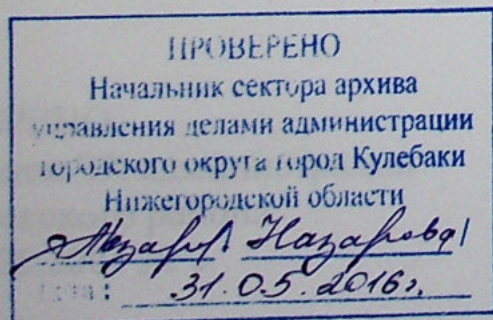 ПРОВЕРЕНО
Начальник сектора архива
управления делами администрации
городского округа город Кулебаки
Нижегородской области
Назарова/
Дата: 31.05.2016г.